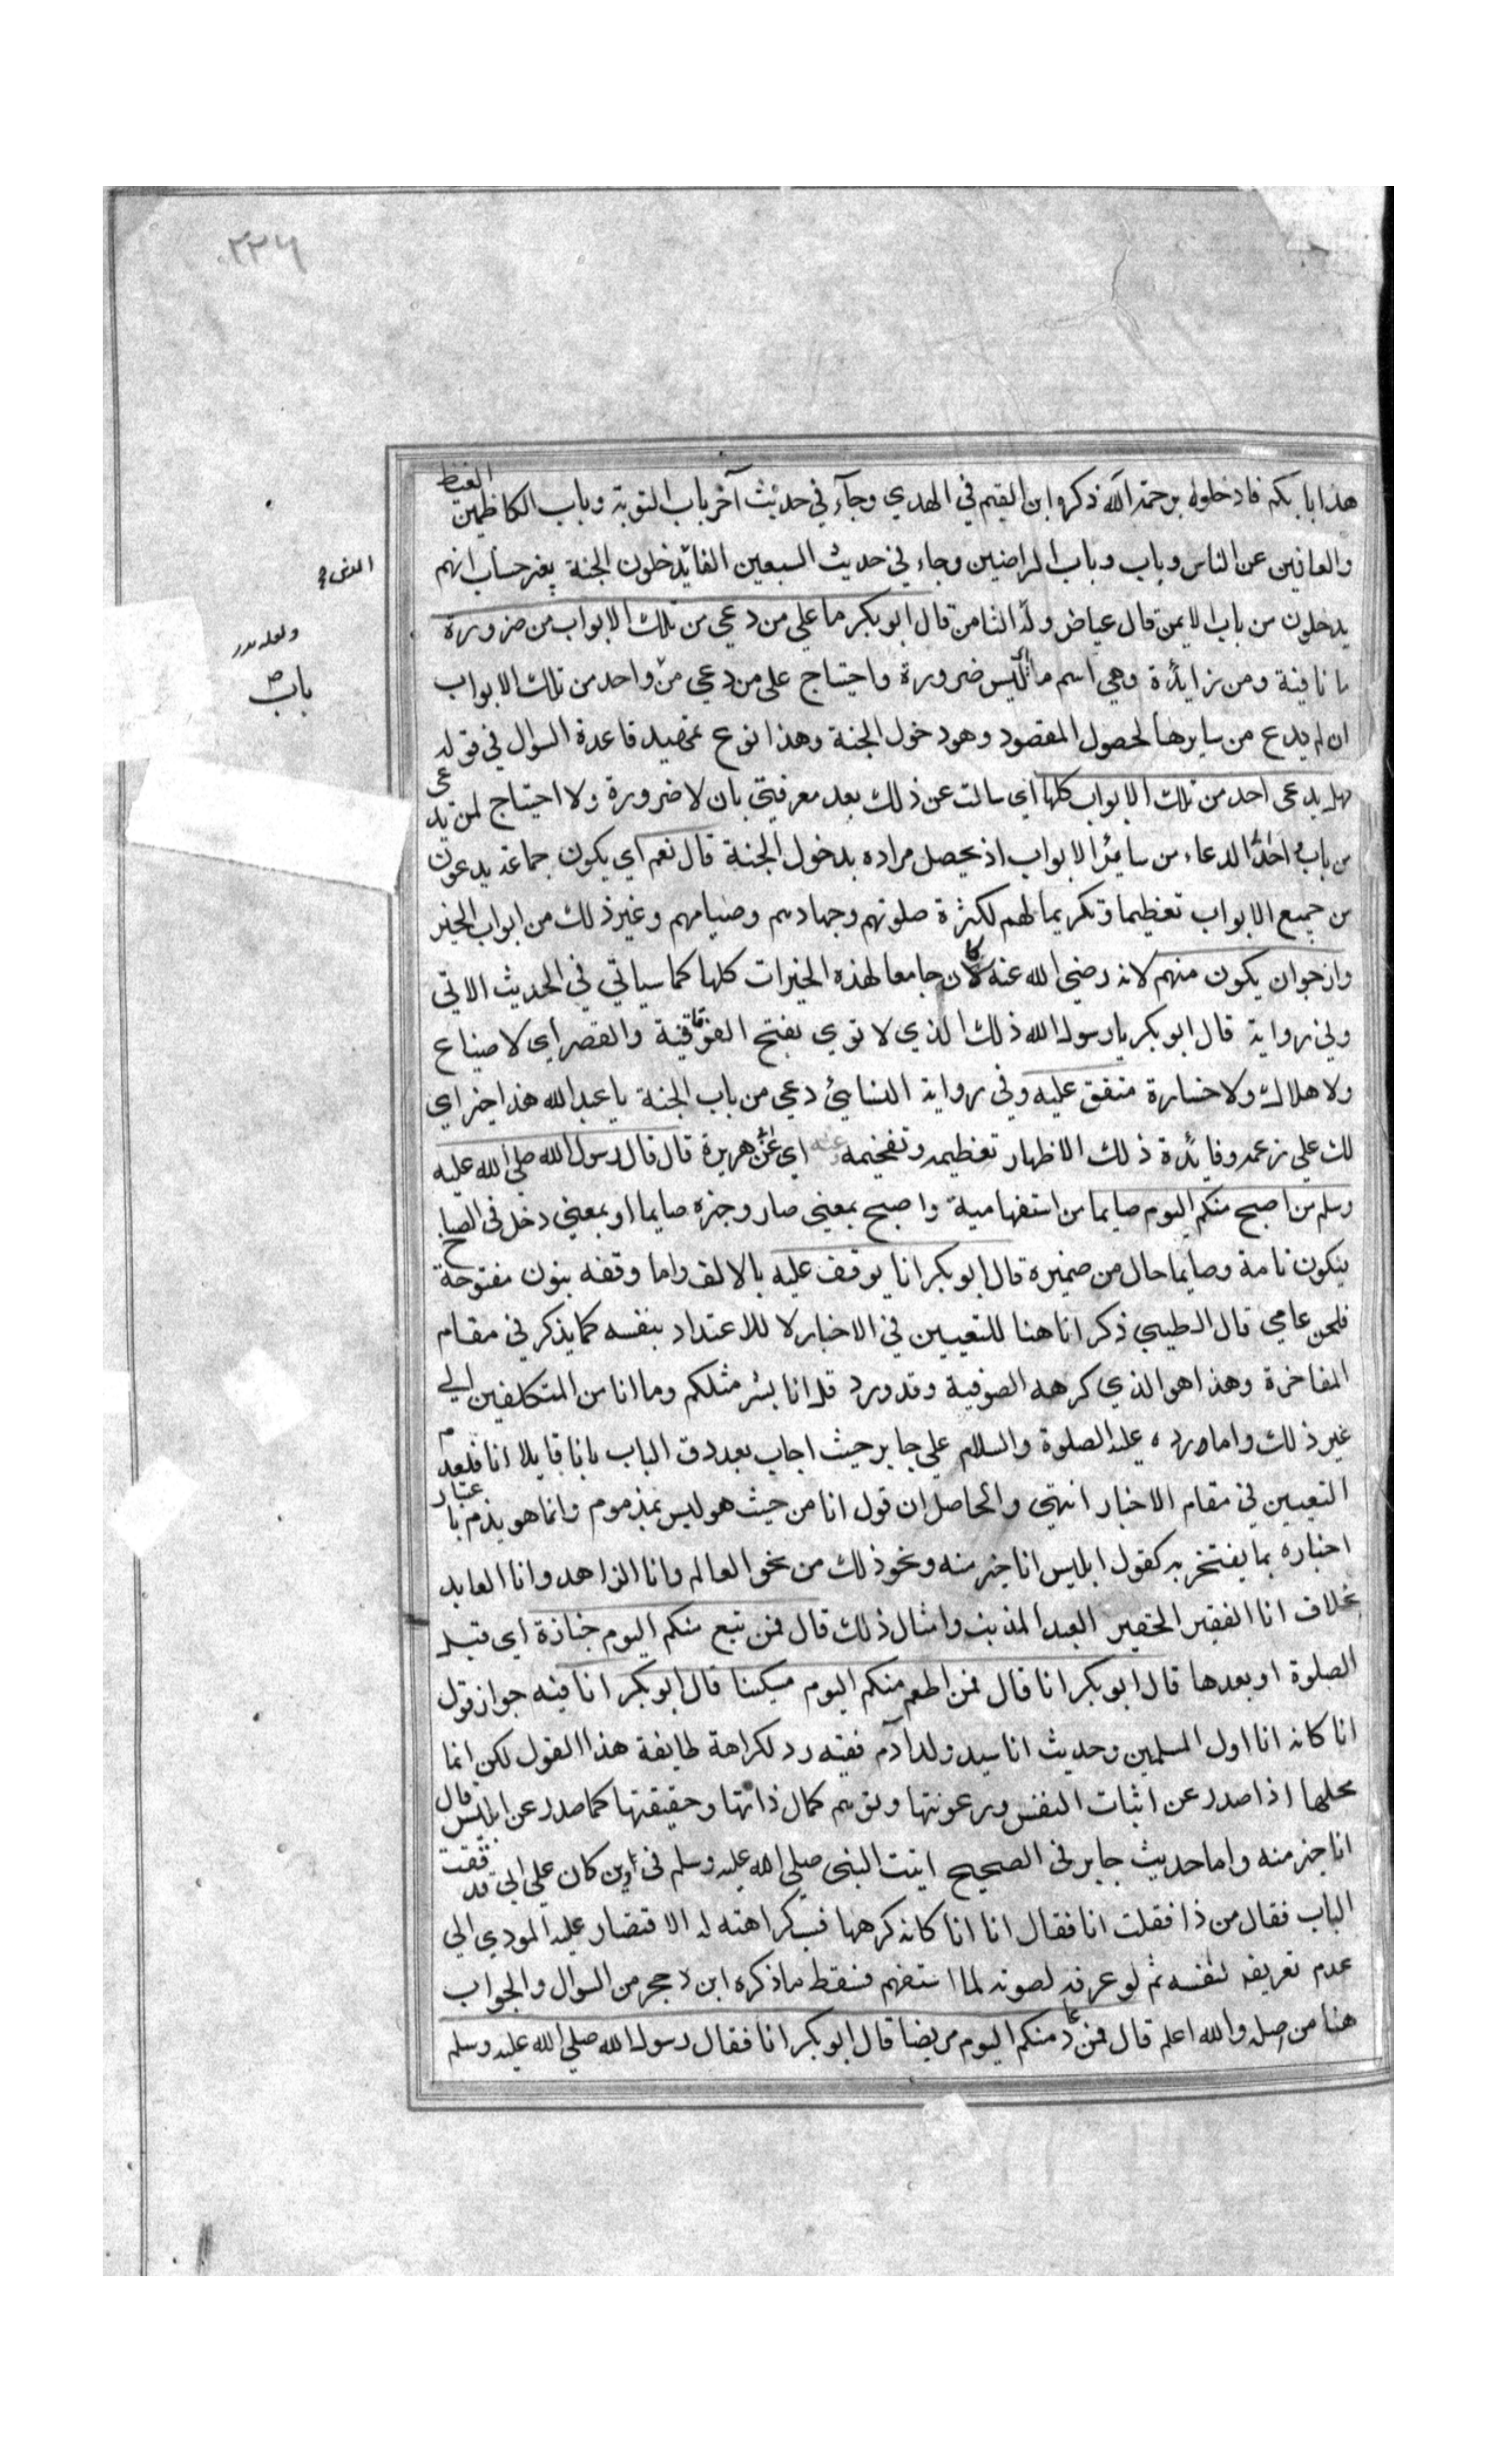 ٢٢٦
هذا بابكم فادخلوه برحمة الله ذكره ابن القيم في الهدي وجآء في حديث آخر باب التوبة وباب الكاظمين الغيظ
والعافين عن الناس وباب وباب الراضين وجاء في حديث السبعين الفا يدخلون الجنة بغير حساب انهم
يدخلون من باب الايمن قال عياض ولعله الثامن قال ابو بكر ما علي من دعي من تلك الابواب من ضرورة
ما نافية ومن زائدة وهي اسم ما اي ليس ضرورة واحتياج على من دعي من واحد من تلك الابواب
ان لم يدع من سايرها لحصول المقصود وهو دخول الجنة وهذا نوع تمهيد قاعدة السوال في قوله
فهل يدعى احد من تلك الابواب كلها اي سالت عن ذلك بعد معرفتي بان لا ضرورة ولا احتياج لمن يدعى
من باب واحد الى الدعاء من سائر الابواب اذ يحصل مراده بدخول الجنة قال نعم اي يكون جماعة يدعون
من جميع الابواب تعظيما وتكريما لهم لكثرة صلوتهم وجهادهم وصيامهم وغير ذلك من ابواب الخير
وارجو ان يكون منهم لانه رضي الله عنه كان جامعا لهذه الخيرات كلها كما سياتي في الحديث الاتي
وفي رواية قال ابو بكر يا رسول الله ذلك الذي لا توي بفتح الفوقانية والقصر اي لا ضياع
ولا هلاك ولا خسارة متفق عليه وفي رواية النسائي دعي من باب الجنة يا عبد الله هذا خير اي
لك على زعمه وفائدة ذلك الاظهار تعظيمه وتفخيمه وعنه اي عن ابي هريرة قال قال رسول الله صلى الله عليه
وسلم من اصبح منكم اليوم صايما من استفهامية واصبح بمعنى صار وخبره صايما او بمعنى دخل في الصباح
فيكون تامة وصايما حال من ضميره قال ابو بكر انا يوقف عليه بالالف واما وقفه بنون مفتوحة
فلحن عامي قال الطيبي ذكر انا هنا للتعيين في الاخبار لا للاعتداد بنفسه كما يذكر في مقام
المفاخرة وهذا هو الذي كرهه الصوفية وقد ورد قل انا بشر مثلكم وما انا من المتكلفين الى
غير ذلك واما رده عليه الصلوة والسلام على جابر حيث اجاب بعد دق الباب بانا قايلا انا انا فلعدم
التعيين في مقام الاخبار انتهى والحاصل ان قول انا من حيث هو ليس بمذموم وانما هو يذم باعتبار
اخباره بما يفتخر به كقول ابليس انا خير منه ونحو ذلك من نحو انا العالم وانا الزاهد وانا العابد
بخلاف انا الفقير الحقير العبد المذنب وامثال ذلك قال فمن تبع منكم اليوم جنازة اي قبل
الصلوة او بعدها قال ابو بكر انا قال فمن اطعم منكم اليوم مسكينا قال ابو بكر انا فيه جواز قول
انا كانه انا اول المسلمين وحديث انا سيد ولد آدم ففيه رد لكراهة طايفة هذا القول لكن انما
محلها اذا صدر عن اثبات النفس ورعونتها وتوهم كمال ذاتها وحقيقتها كما صدر عن ابليس قال
انا خير منه واما حديث جابر في الصحيح اتيت النبي صلى الله عليه وسلم في دين كان على ابي فدققت
الباب فقال من ذا فقلت انا فقال انا انا كانه كرهها فسبب كراهته له الاقتصار عليه المودي الى
عدم تعريفه نفسه ثم لو عرفه لصوته لما استفهم فسقط ما ذكره ابن حجر من السوال والجواب
هنا من اصله والله اعلم قال فمن عاد منكم اليوم مريضا قال ابو بكر انا فقال رسول الله صلى الله عليه وسلم
باب